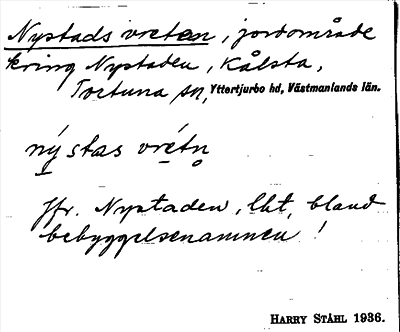 Nystads vreten, jordområde
kring Nystaden, Kålsta,
Tortuna sn, Yttertjurbo hd, Västmanlands län.
nýstas vrétn̥
Jfr. Nystaden, lht, bland
bebyggelsenamnen!
HARRY STÅHL 1936.